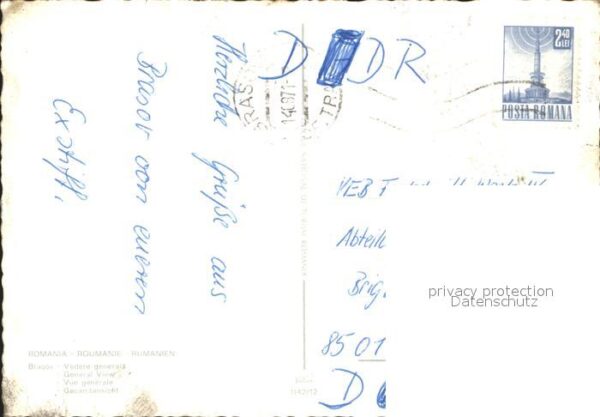 Herzliche Grüße aus
Brasov von eurem
Exschiff,
D DR
2,40
LEI
POSTA ROMANA
BRAS
14.8.71
VEB
Abteil
Brig.
8501
D
privacy protection
Datenschutz
ROMANIA - ROUMANIE - RUMÄNIEN:
Braşov - Vedere generală
General View
Vue générale
Gesamtansicht